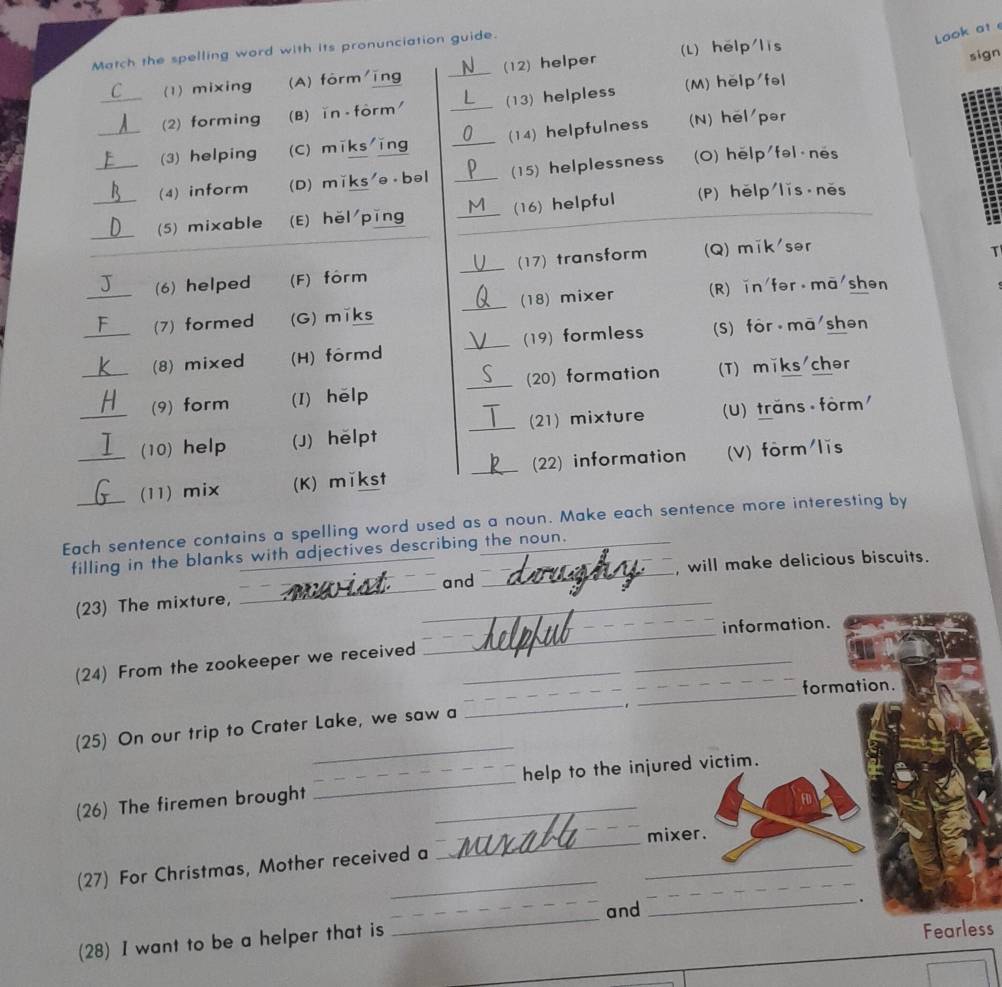 Look at
sign
Match the spelling word with its pronunciation guide.
C (1) mixing (A) fôrm′ĭng
A (2) forming (B) ĭn · fôrm′
E (3) helping (C) mĭks′ĭng
B (4) inform (D) mĭks′ə · bəl
D (5) mixable (E) hĕl′pĭng
J (6) helped (F) fôrm
F (7) formed (G) mĭks
K (8) mixed (H) fôrmd
H (9) form (I) hĕlp
I (10) help (J) hĕlpt
G (11) mix (K) mĭkst
N (12) helper (L) hĕlp′lĭs
L (13) helpless (M) hĕlp′fəl
O (14) helpfulness (N) hĕl′pər
P (15) helplessness (O) hĕlp′fəl · nĕs
M (16) helpful (P) hĕlp′lĭs · nĕs
U (17) transform (Q) mĭk′sər
Q (18) mixer (R) ĭn′fər · mā′shən
V (19) formless (S) fôr · mā′shən
S (20) formation (T) mĭks′chər
T (21) mixture (U) trăns · fôrm′
R (22) information (V) fôrm′lĭs
Each sentence contains a spelling word used as a noun. Make each sentence more interesting by
filling in the blanks with adjectives describing the noun.
(23) The mixture, and doughy, will make delicious biscuits.
(24) From the zookeeper we received helpful information.
(25) On our trip to Crater Lake, we saw a , formation.
(26) The firemen brought help to the injured victim.
FD
(27) For Christmas, Mother received a mixable mixer.
(28) I want to be a helper that is and .
Fearless